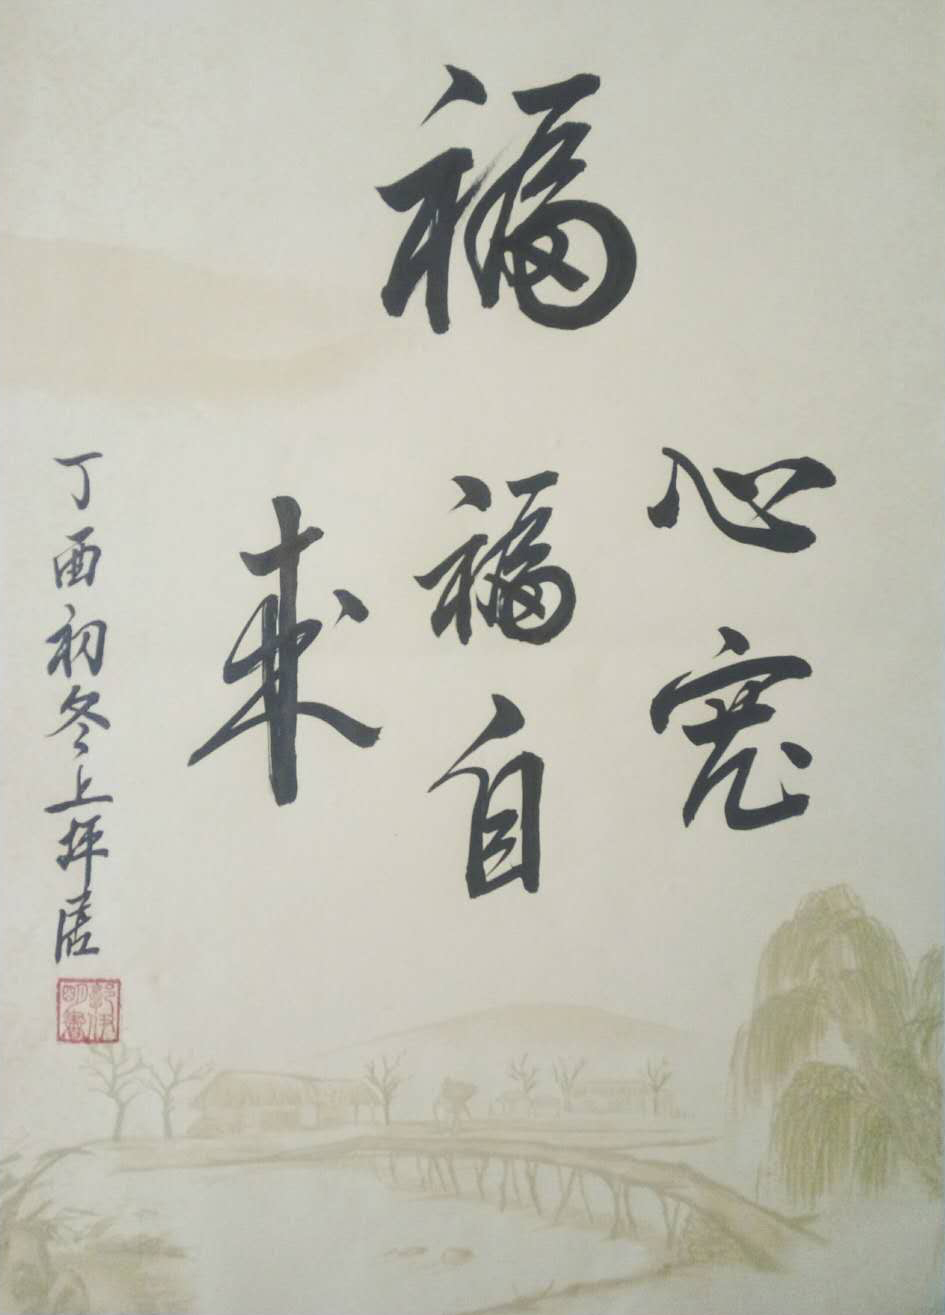 福
心宽
福自
来
丁酉初冬上坪居